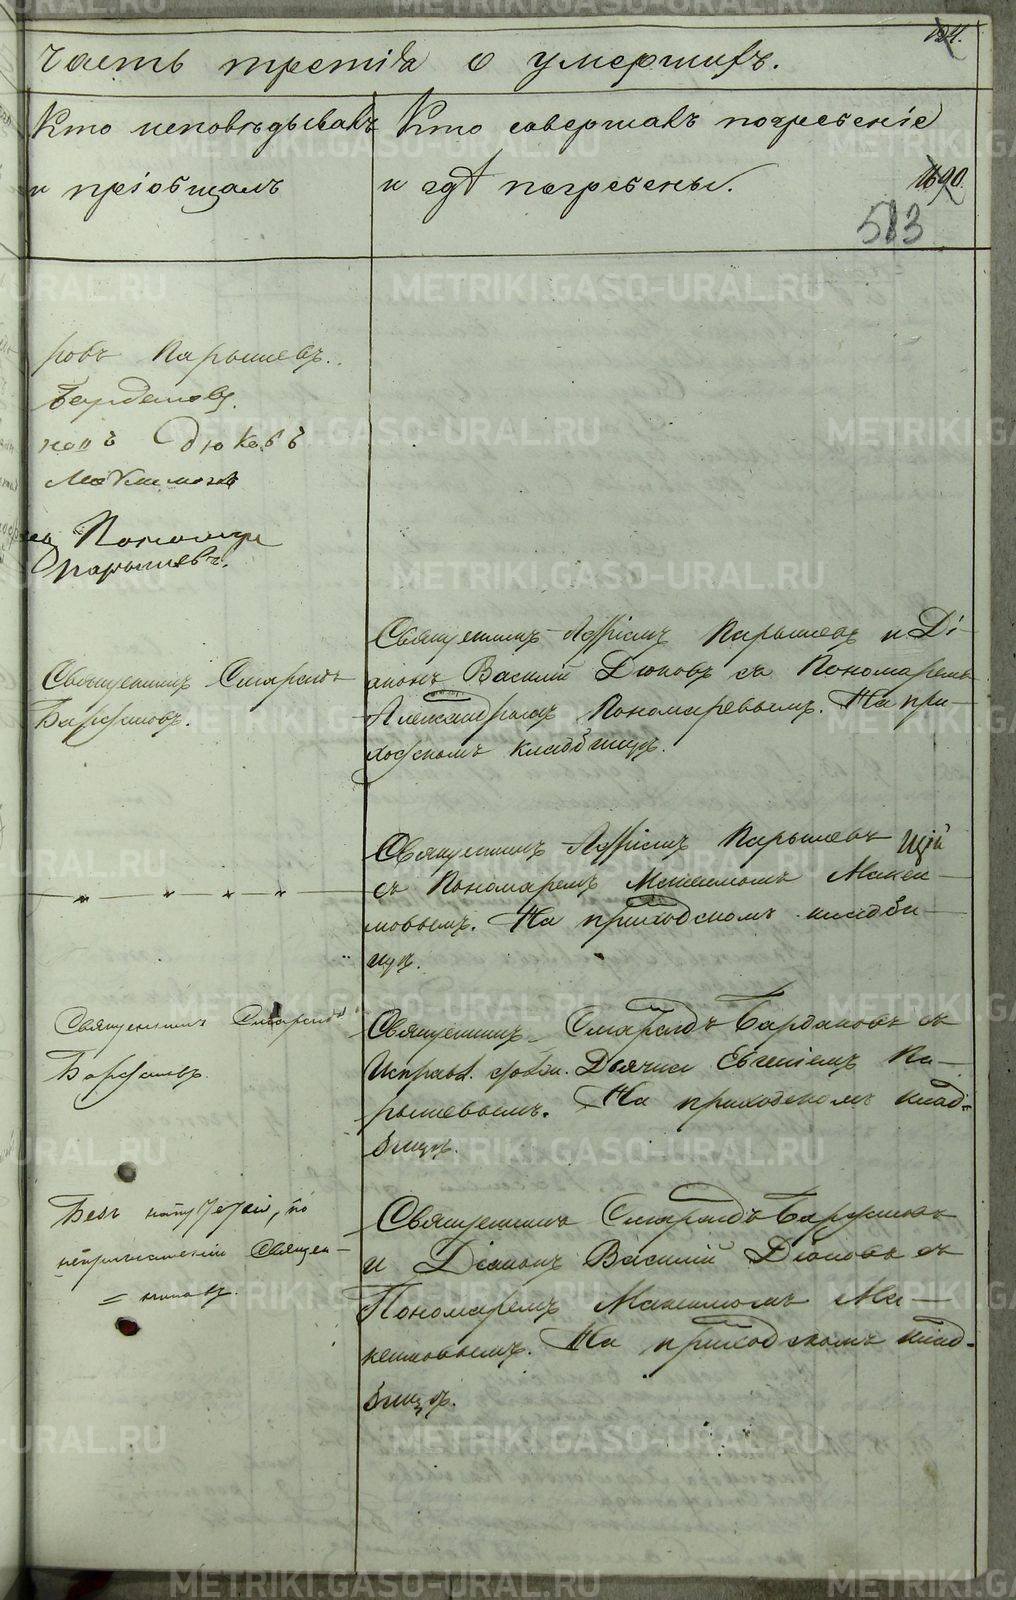 124.
Часть третія о умершихъ.
Кто исповѣдывалъ
и пріобщалъ
Кто совершалъ погребеніе
и гдѣ погребены.
1690
513
ровъ Парышевъ.
Бардановъ.
конъ Дюковъ
Максимовъ
Пономарь
Парышевъ.
Священникъ Смарагдъ
Бардановъ.
Священникъ Адріанъ Парышевъ и Ді-
аконъ Василій Дюковъ съ Пономаремъ
Александромъ Пономаревымъ. На при-
ходскомъ кладбищѣ.
Священникъ Адріанъ Парышевъ
съ Пономаремъ Максимомъ Макси-
мовымъ. На приходскомъ кладби-
щѣ.
Священникъ Смарагдъ
Бардановъ.
Священникъ Смарагдъ Бардановъ съ
Исправл. должн. Дьячка Евгеніемъ Па-
рышевымъ. На приходскомъ клад-
бищѣ.
Безъ напутствія, по
Священ-
Священникъ Смарагдъ Бардановъ
и Діаконъ Василій Дюковъ съ
Пономаремъ Максимомъ Ма-
ксимовымъ. На приходскомъ клад-
бищѣ.
METRIKI.GASO-URAL.RU